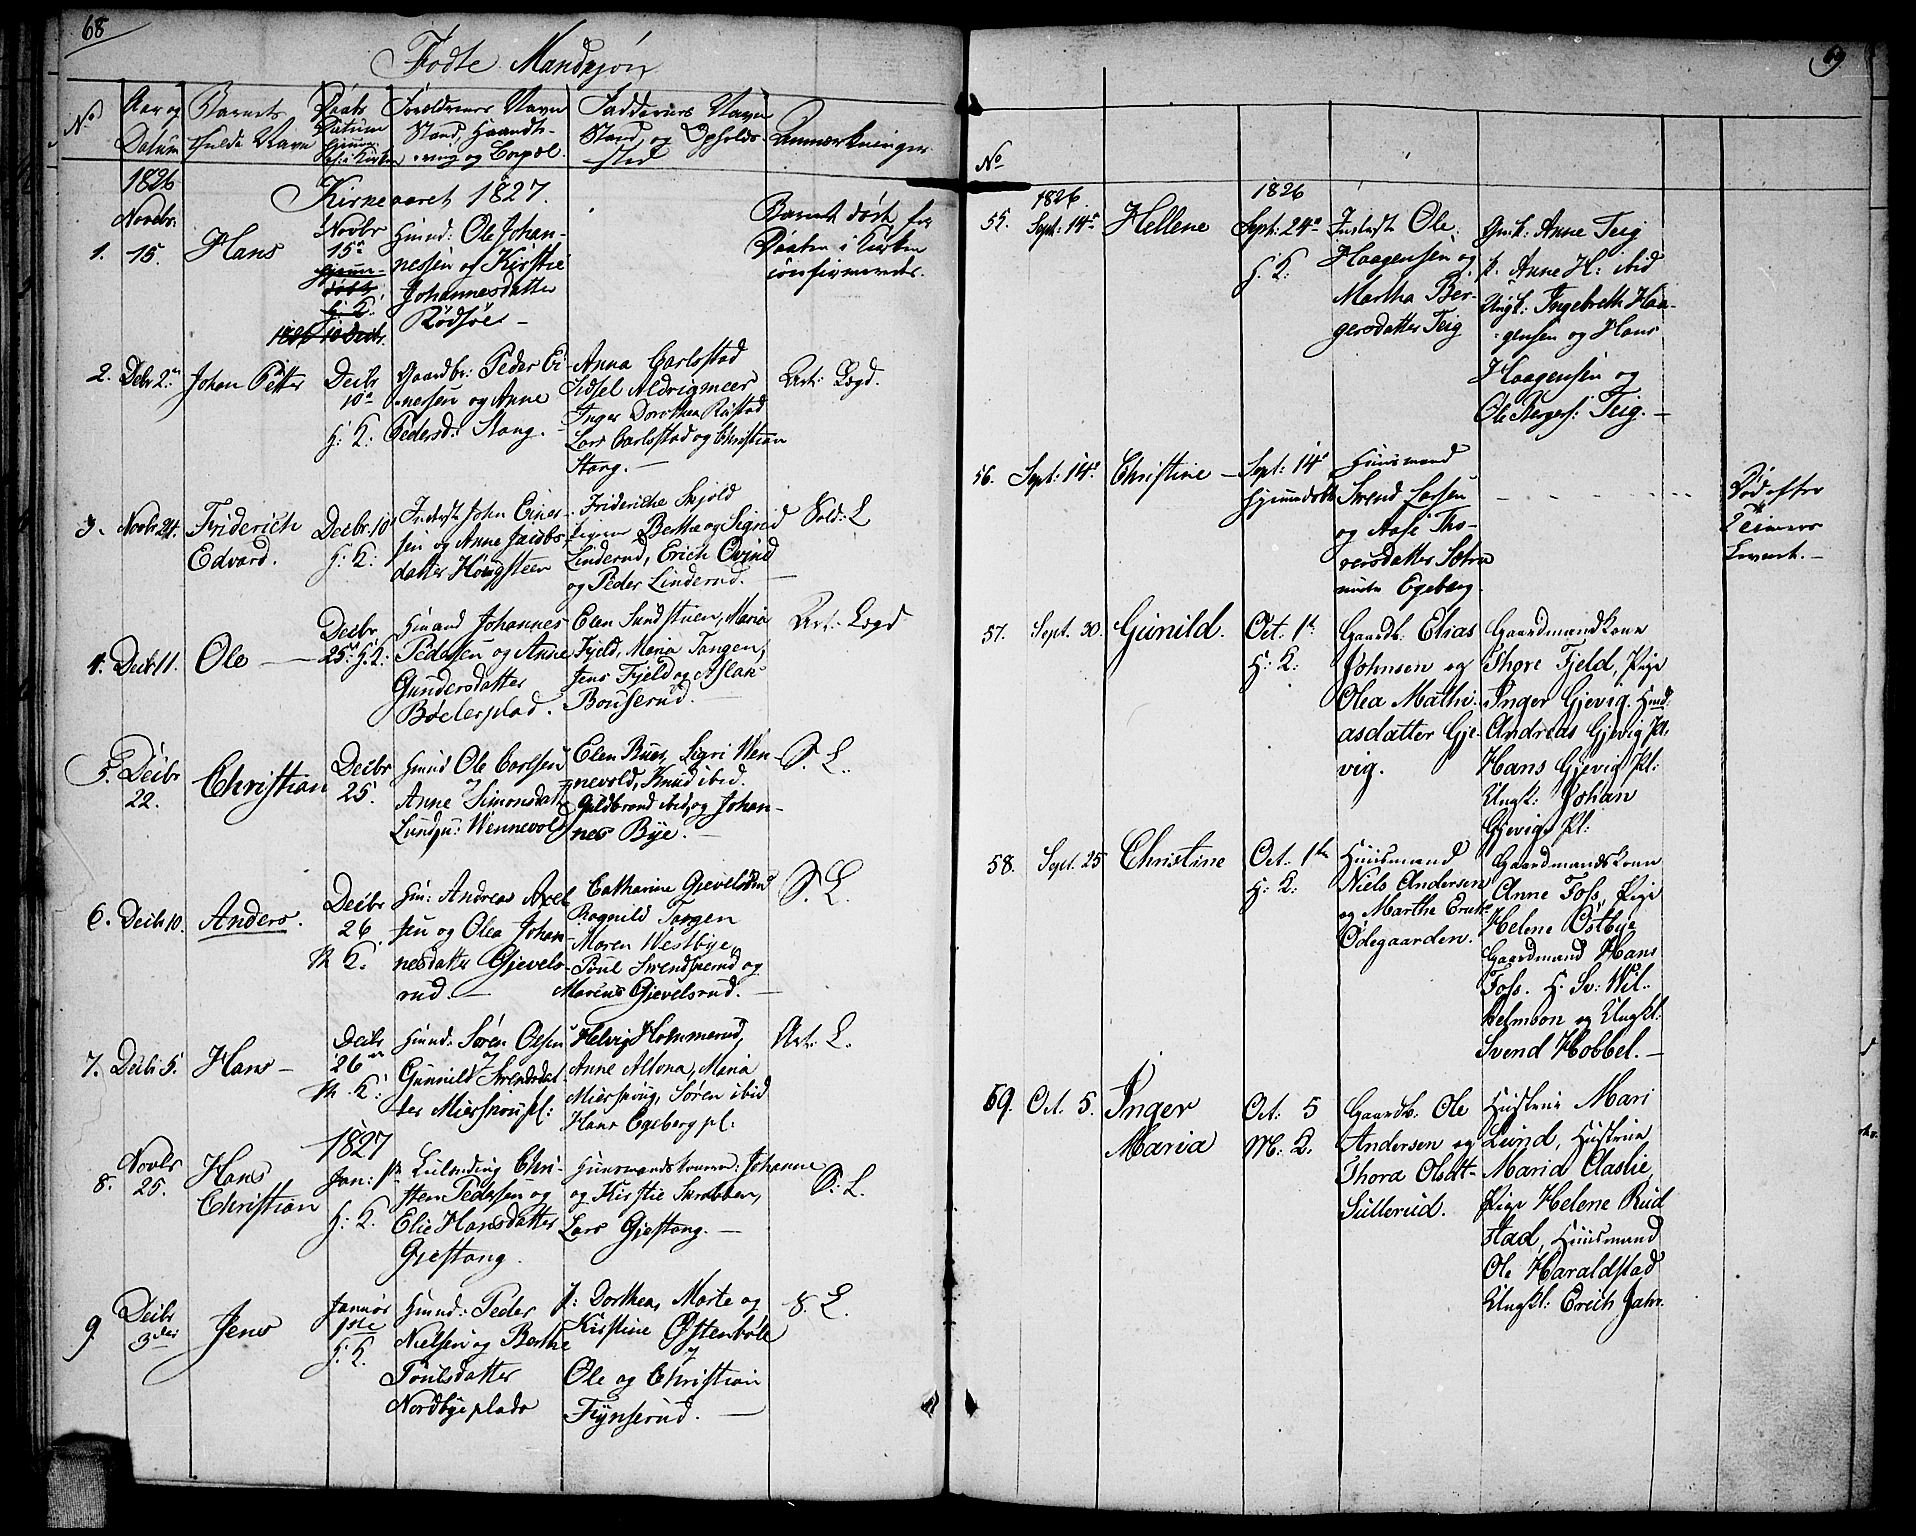 68
Fødte Mandkjøn
No
Aar og
Datum
Barnets
fulde Navn
Daabs
Datum
Forældrenes Navn
Stand, Haandte-
ring og Bopæl.
Faddernes Navn
Stand, og Opholds-
sted
Anmærkninger.
1826
Kirkeaaret 1827.
1.
Novbr.
15.
Hans
Novbr
15de
H: K:
Huusmd: Ole Johan-
nessen og Kirstie
Johannesdatter
Rødsøe
Barnet døbt for
Daaben i Kirken
confirmeredes.
2.
Decbr 2den
Johan Petter
Decbr
10de
H: K:
Gaardbr: Peder Ei-
nersen og Anne
Pedersd: Stang.
Anna Carlsstad
Sidsel Aldrigmeer
Inger Dorothea Rustad
Lars Carlsstad og Christian
Stang.
Art: Lægd.
3.
Novbr 24.
Friderich
Edvard.
Decbr. 10
H: K:
Inderst John Einer-
sen og Anne Jacobs-
datter Hougsteen
Frideriche Skjold
Pigerne Berthe og Sigrid
Linderud, Erich Qvind
og Peder Linderud.
Sold: L
4.
Decbr 11.
Ole
Decbr
25de H: K:
Huusmd Johannes
Pedersen og Anne
Gundersdatter
Bøelerplad.
Elen Sundstuen, Maria
Fjeld, Maria Tangen,
Jens Fjeld og Aslak
Bouserud.
Art: Lægd
5.
Decbr
22.
Christian
Decbr
25.
Huusmd Ole Carlsen
og
Anne Simonsdatt
Lundju: Wennevold
Elen Bues, Sigri Wen-
nevold, Knud ibid.
Guldbrand ibid, og Johan-
nes Bye.
S. L.
6.
Decbr 10.
Anders.
Decbr
26
M K.
Huu: Andreas Axel-
sen og Olea Johan-
nesdatter Gjevels-
rud
Catharine Gjevelsrud
Ragnild Tangen
Maren Westbye,
Poul Svendsrud og
Marcus Gjevelsrud.
S. L.
7.
Decbr 5.
Hans
Decbr
26
M. K:
Huusmd: Søren Olsen
og
Gunnild Svendsdat-
ter Miersjouspl:
Helvig Hommerud,
Anne Altona, Maria
Miersjoug, Søren ibid
Hans Egebergpl:
Art: L.
8.
Novbr
25.
Hans
Christian
1827
Jan: 1ste
H: K.
Leilending Chri-
sten Pedersen og
Elie Hansdatter
Gjestang.
Huusmandskonerne: Johanne
og Kirstie Skrabben,
Lars Gjestang.
S: L.
9
Decbr
3die
Jens
Januar
1ste
H: K.
Huusmd: Peder
Nielsen og Berthe
Poulsdatter
Nordbyeplads
P: Dorthea, Marte og
Kirstine Østenbøle
Ole og Christian
Fynserud.
S. L.
69
No
55.
1826.
Sept: 14de
Hellene
1826
Sept: 24de
H: K:
Inderste Ole
Haagensen og
Martha Ber-
gersdatter Teig
Gmk: Anne Teig
P. Anne H: ibid
Ungk: Ingebreth Haa-
gensen og Hans
Haagensen og
Ole Bergers: Teig.
56.
Sept: 14de
Christine
Sept: 14de
hjemmedøbt
Huusmand
Svend Larsen
og Aase Tho-
versdatter
under Egeberg
Død efter
Timers
Levnet.
57.
Sept. 30.
Gunild.
Oct. 1te
H: K:
Gaardb. Elias
Johnsen og
Olea Mathi-
asdatter Gje-
vig.
Gaardmandkone
Thore Fjeld, Pige
Inger Gjevig. Husmd:
Andreas Gjevig Pl.
Hans Gjevig Pl:
Ungk: Johan
Gjevigs Pl:
58.
Sept. 25
Christine
Oct. 1te
H: K:
Huusmand
Niels Andersen
og Marthe Ericksd
Ødegaarden.
Gaardmandskone
Anne Foss, Pige
Helene Østbye
Gaardmand Hans
Foss. H. Sv: Wil-
helmson og Ungkl:
Svend Hobbel.
59.
Oct. 5.
Inger
Maria
Oct: 5
M: K.
Gaardb. Ole
Andersen og
Thora Olsdt-
Sullerud.
Hustrue Mari
Lund, Hustrue
Maria Claslie,
Pige Helene Rud
stad, Huusmand
Ole Haraldstad
Ungkl: Erich Jahr.